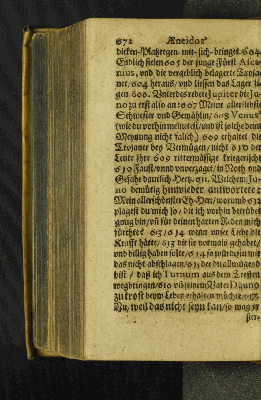 672 Æneidos
dicken Platzregen mit sich bringet. 604
Endlich fielen 605 der junge Fürst Asca-
nius, und die vergeblich belagerte Troja-
ner, 604 heraus, und liessen das Lager li-
gen 606. Unterdes redete Jupiter die Ju-
no zu erst also an 607 Meine allerliebste
Schwester und Gemählin, 608 Venus
(wie du vorhin meinetest, und ist solche deine
Meynung nicht falsch) 609 erhaltet die
Trojaner bey Vermügen, nicht 610 der
Leute ihre 609 rittermässige kriegerische
610 Faust, unnd unverzagte, in Noth und
Gefahr daurlich Hertz. 611 Welchem Ju-
no demütig hinwieder antwortete:
Mein allerschönster Eh-Herr, worumb 612
plagest du mich so, die ich vorhin betrübet
gnug bin, uñ für deinen harten Reden mich
fürchte? 613, 614 wenn unser Liebe die
Krafft hätte, 613 die sie vormals gehabt,
und billig haben solte, 614 so würdestu mir
das nicht abschlagen, 615 der du allmögend
bist, daß ich Turnum aus dem Treffen
wegbringen, 616 uñ seinem Vater Dauno
zu trost beym Leben erhalten möchte.
Nu, weil das nicht seyn kan, so mag er